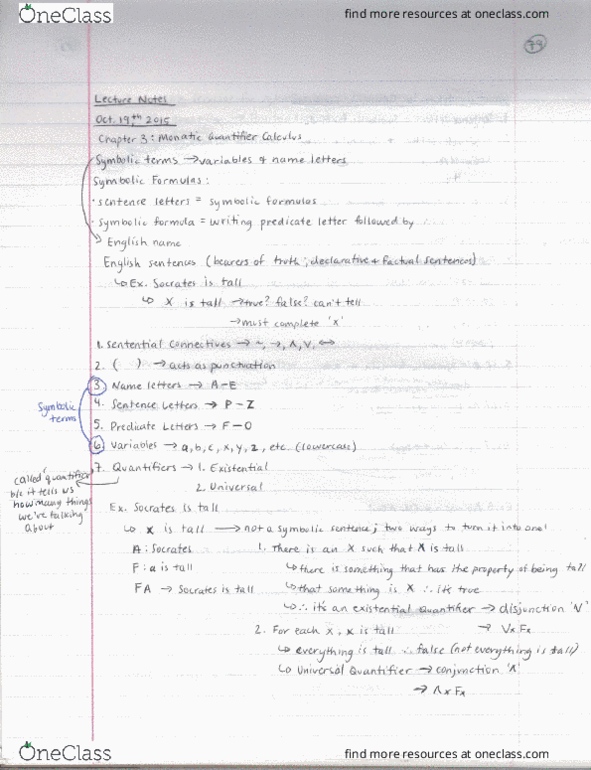 OneClass
find more resources at oneclass.com
79
Lecture Notes
Oct. 19th 2015
Chapter 3: Monatic Quantifier Calculus
Symbolic terms → variables & name letters
Symbolic Formulas:
· sentence letters = symbolic formulas
· symbolic formula = writing predicate letter followed by
English name
English sentences (bearers of truth; declarative & factual sentences)
↳ Ex. Socrates is tall
↳ X is tall → true? false? can't tell
→ must complete 'x'
1. Sentential Connectives → ~, →, ∧, ∨, ↔
2. ( ) → acts as punctuation
3. Name letters → A-E
4. Sentence Letters → P-Z
5. Predicate Letters → F-O
6. Variables → a, b, c, x, y, z, etc. (lowercase)
Symbolic
terms
7. Quantifiers → 1. Existential
2. Universal
called 'quantifier'
b/c it tells us
how many things
we're talking
about
Ex. Socrates is tall
↳ x is tall → not a symbolic sentence; two ways to turn it into one!
A: Socrates
F: a is tall
FA → Socrates is tall
1. There is an X such that X is tall
↳ there is something that has the property of being tall
↳ that something is X ∴ it's true
↳ ∴ it's an existential quantifier → disjunction 'V'
→ VxFx
2. For each x, x is tall
↳ everything is tall ∴ false (not everything is tall)
↳ Universal Quantifier → conjunction '∧'
→ ∧xFx
OneClass
find more resources at oneclass.com